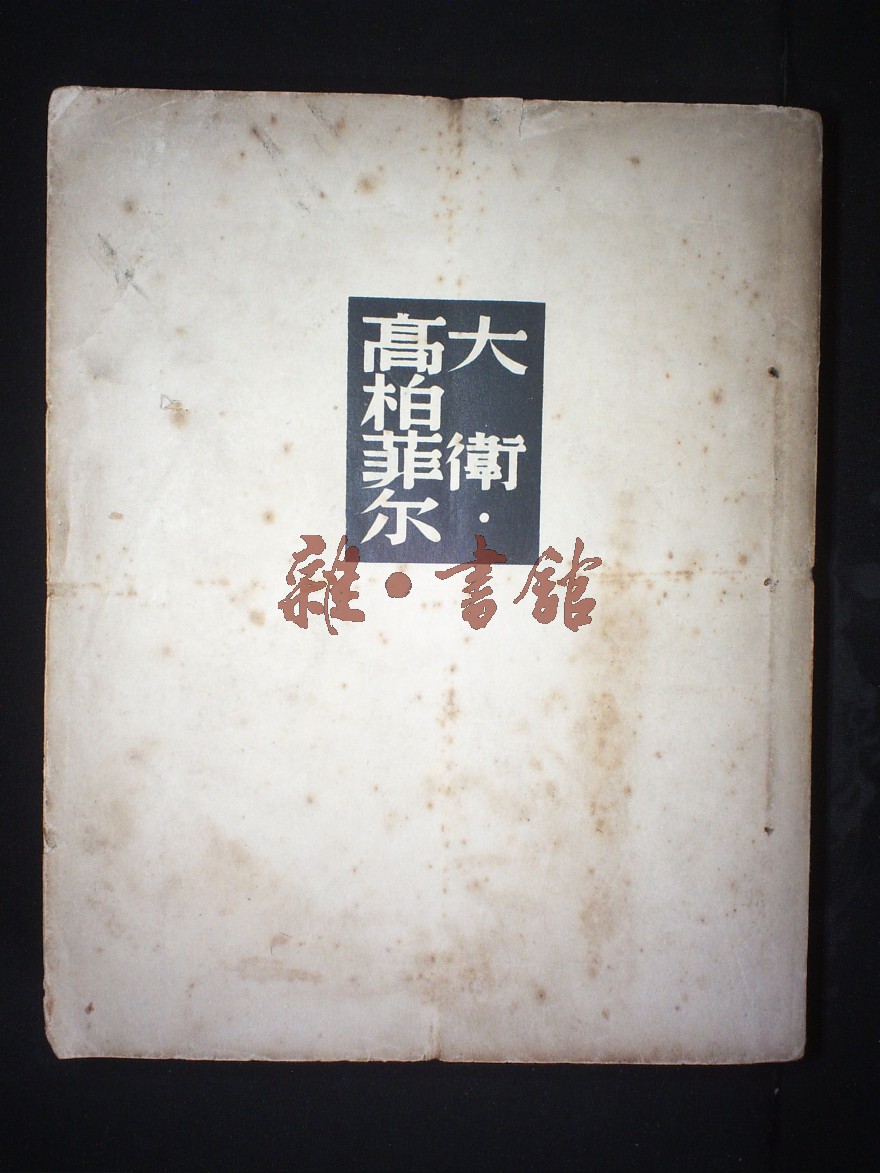 大衛·
髙柏菲尔
雜·書館